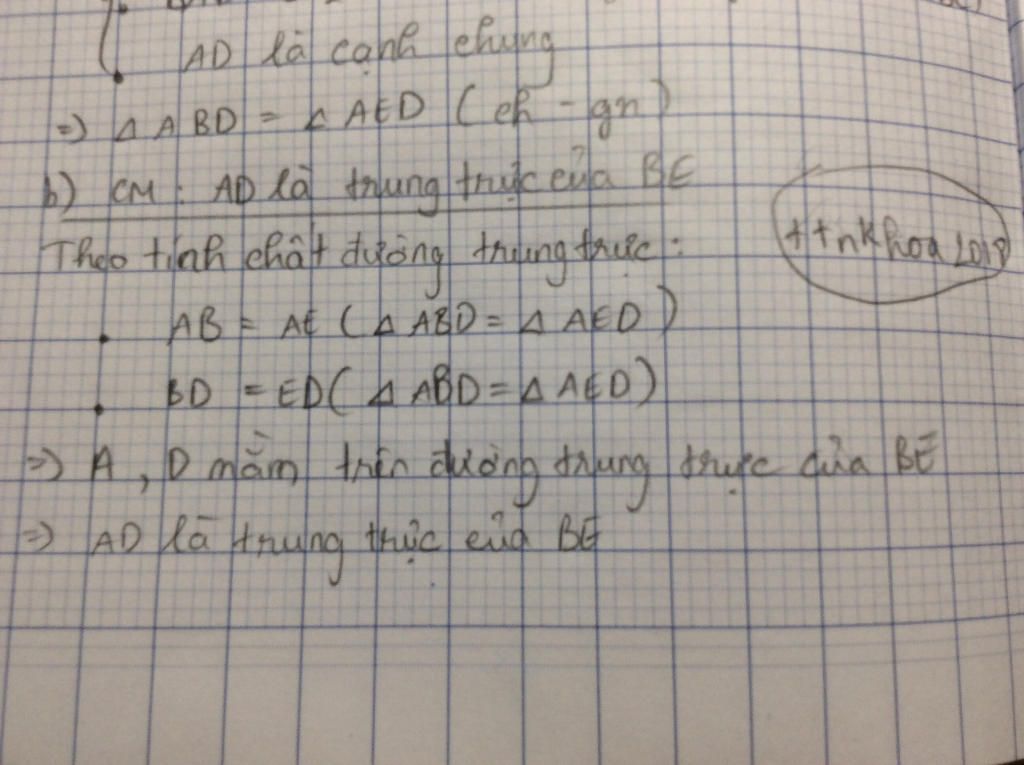 AD là cạnh chung
=> Δ ABD = Δ AED (ch - gn)
b) CM : AD là trung trực của BE
Theo tính chất đường trung trực :
ttnkhoa2018
• AB = AE (Δ ABD = Δ AED)
• BD = ED (Δ ABD = Δ AED)
=> A, D nằm trên đường trung trực của BE
=> AD là trung trực của BE